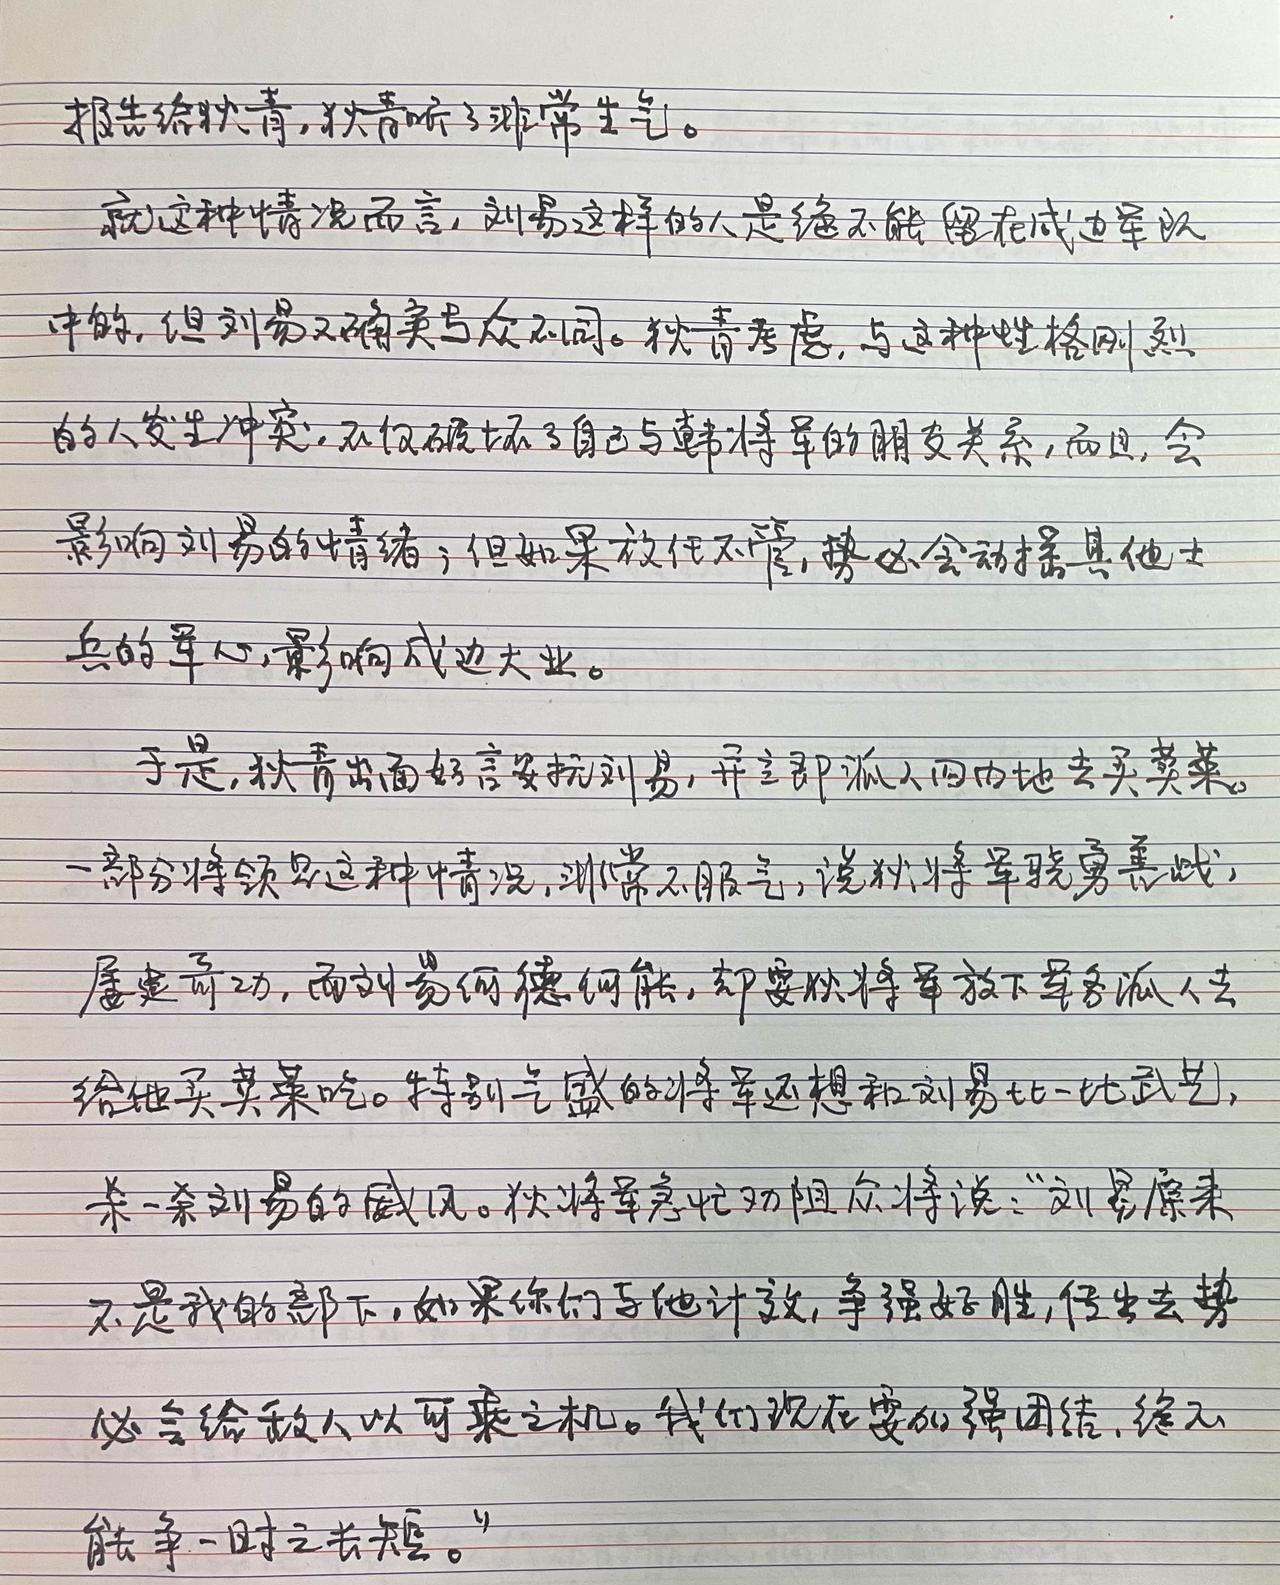 报告给狄青,狄青听了非常生气。
就这种情况而言,刘易这样的人是绝不能留在戍边军队
中的,但刘易又确实与众不同。狄青考虑,与这种性格刚烈
的人发生冲突,不仅破坏了自己与韩将军的朋友关系,而且,会
影响刘易的情绪;但如果放任不管,势必会动摇其他士
兵的军心,影响戍边大业。
于是,狄青出面好言安抚刘易,并立即派人回内地去买苦菜。
一部分将领见这种情况,非常不服气,说狄将军骁勇善战,
屡建奇功,而刘易何德何能,却要狄将军放下军务派人去
给他买苦菜吃。特别气盛的将军还想和刘易比一比武艺,
杀一杀刘易的威风。狄将军急忙劝阻众将说:“刘易原来
不是我的部下,如果你们与他计较,争强好胜,传出去势
必会给敌人以可乘之机。我们现在要加强团结,绝不
能争一时之长短。”